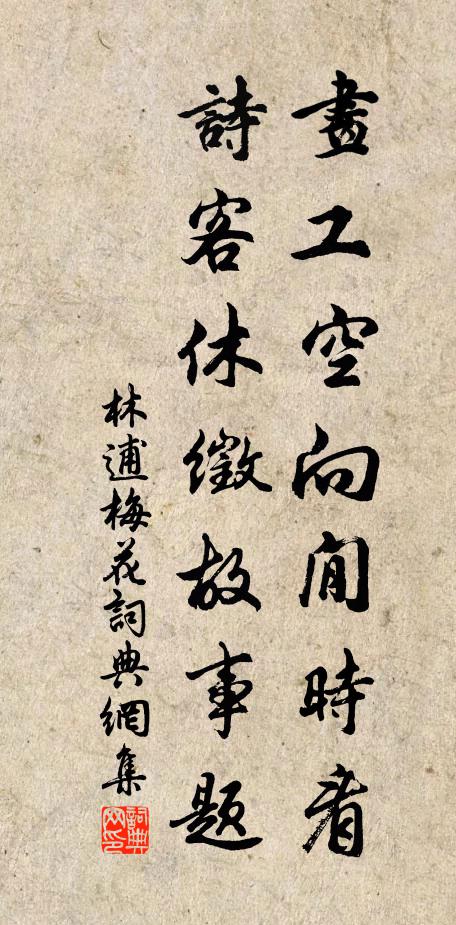 畫工空向閒時看
詩客休徵故事題
林逋梅花詞典網集
詞典網印